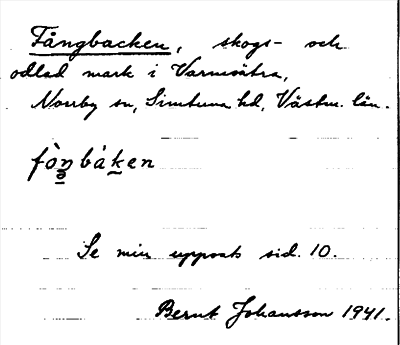 Fångbacken, skogs- och
odlad mark i Varmsätra,
Norrby sn, Simtuna hd, Västm. län.
fòn̠bák̠en
Se min uppsats sid. 10.
Bernt Johansson 1941.